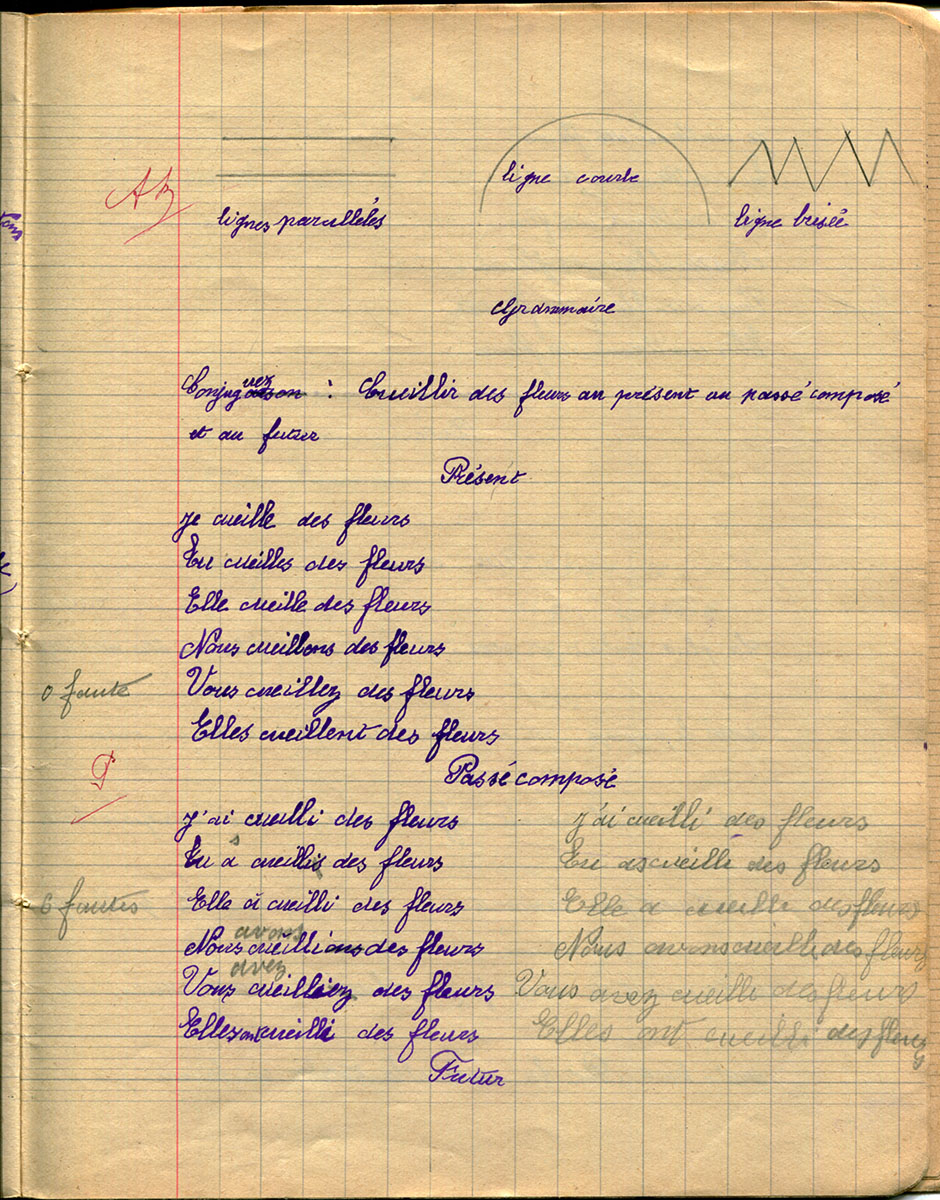 AB
ligne courbe
lignes parallèlés
ligne brisée
Grammaire
uez
Conjugaison : Cueillir des fleurs au présent au passé composé
et au futur
Présent
Je cueille des fleurs
Tu cueilles des fleurs
Elle cueille des fleurs
Nous cueillons des fleurs
0 faute
Vous cueillez des fleurs
Elles cueillent des fleurs
Passé composé
J'ai cueilli des fleurs
j'ai cueilli des fleurs
s
Tu a cueillis des fleurs
Tu as cueilli des fleurs
6 fautes
Elle à cueilli des fleurs
Elle a cueilli des fleurs
avons
Nous cueillions des fleurs
Nous avons cueilli des fleurs
avez
Vous cueilliez des fleurs
Vous avez cueilli des fleurs
Elles ont cueilli des fleurs
Elles ont cueilli des fleurs
Futur